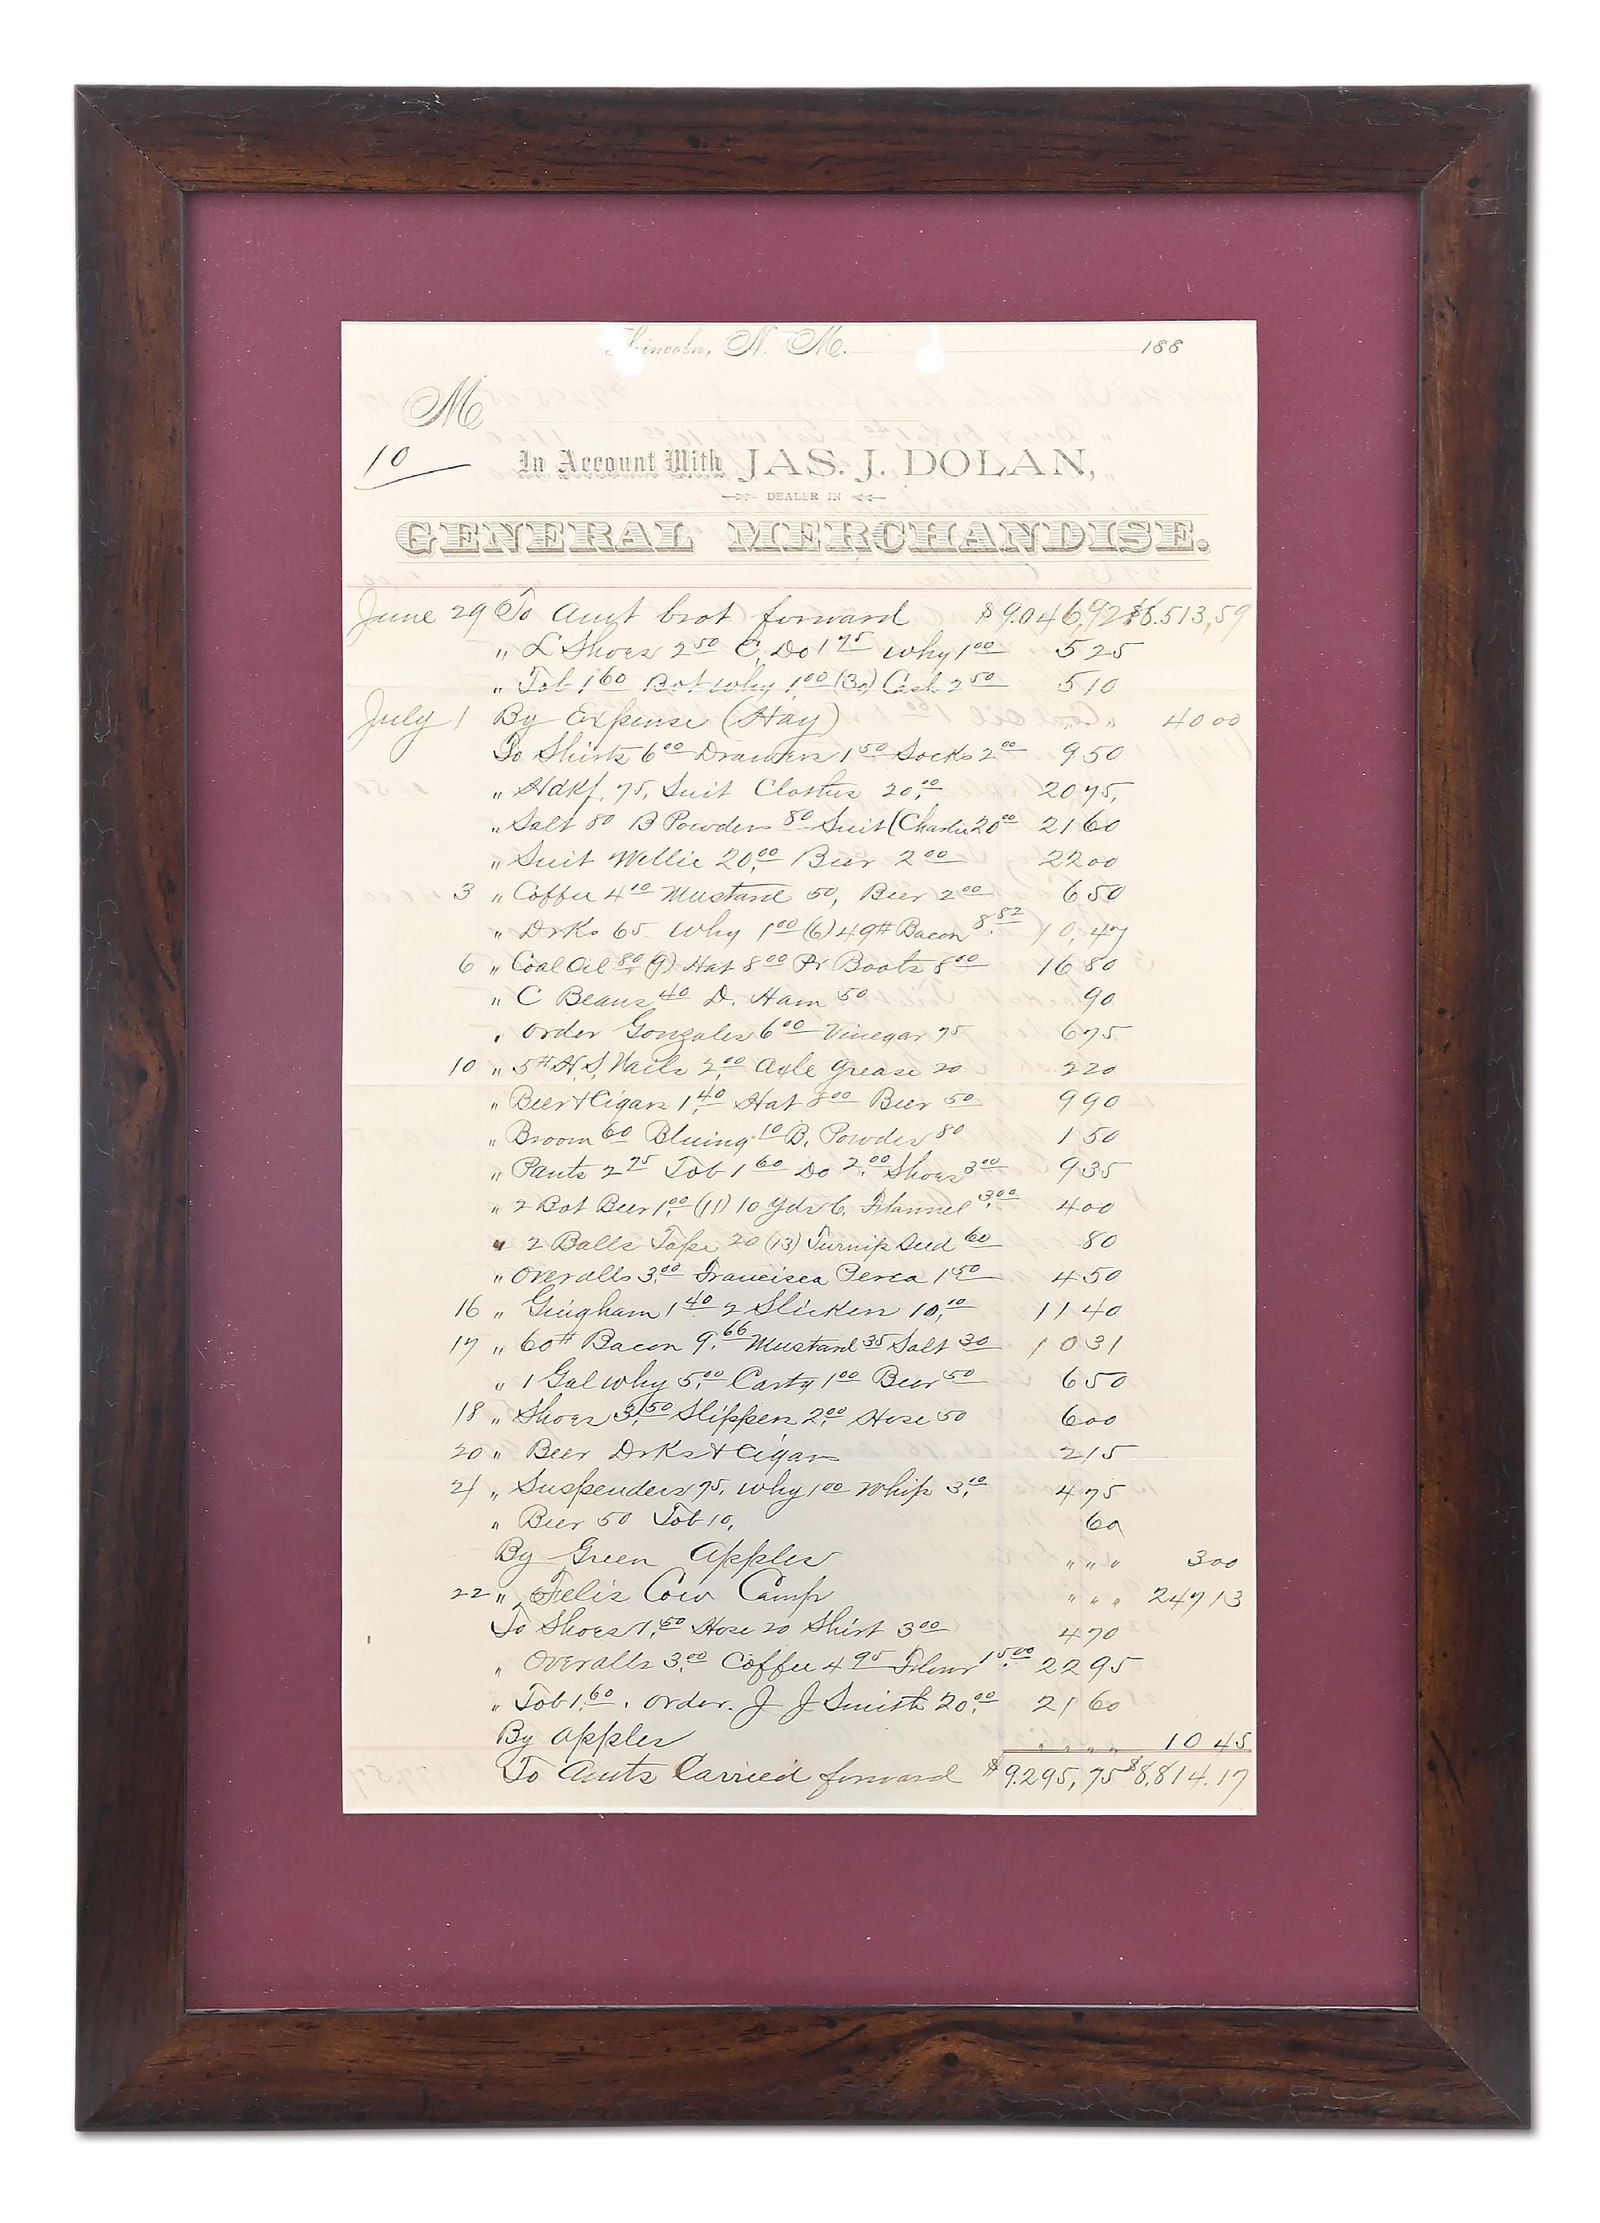 Lincoln, N. M. 188
M
10
In Account With JAS. J. DOLAN,
DEALER IN
GENERAL MERCHANDISE.
June 29 To Amt brot forward $9.046,92 $8.513,59
" L Shoes 2 50 C, Do 1 75 Why 1 00 5 25
" Tob 1 60 Bot Why 1,00 (30) Cash 2 50 5 10
July 1 By Expense (Hay) " " 40 00
To Shirts 6 00 Drawers 1 50 Socks 2 00 9 50
" Hdkf, 75, Suit Clothes 20,00 20 75,
" Salt 80 B Powder 80 Suit (Charlie 20 00 21 60
" Suit Willie 20,00 Beer 2 00 22 00
3 " Coffee 4 10 Mustard 50, Beer 2 00 6 50
" Drks 65 Why 1 00 (6) 49# Bacon 8.82 10,47
6 " Coal Oil 80 (9) Hat 8 00 Pr Boots 8 00 16 80
" C Beans 40 D. Ham 50 90
" Order Gonzales 6 00 Vinegar 75 6 75
10 " 5# H. S, Nails 2,00 Axle Grease 20 2 20
" Beer & Cigars 1,40 Hat 8 00 Beer 50 9 90
" Broom 60 Bluing 10 B. Powder 80 1 50
" Pants 2 75 Tob 1 60 Do 2,00 Shoes 3 00 9 35
" 2 Bot Beer 1,00 (11) 10 Yds C. Flannel 3,00 4 00
" 2 Balls Tape 20 (13) Turnip Seed 60 80
" Overalls 3,00 Francisca Perea 1 50 4 50
16 " Gingham 1 40 2 Slickers 10,10 11 40
17 " 60# Bacon 9.66 Mustard 35 Salt 30 10 31
" 1 Gal Why 5,00 Carty 1 00 Beer 50 6 50
18 " Shoes 3,50 Slippers 2,00 Hose 50 6 00
20 " Beer Drks & Cigars 2 15
21 " Suspenders 75, Why 1 00 Whip 3,10 4 75
" Beer 50 Tob 10, 60
By Green Apples " " " 3 00
22 " Felis Cow Camp " " " 247 13
To Shoes 1,50 Hose 20 Shirt 3 00 4 70
" Overalls 3,00 Coffee 4 95 Flour 15.00 22 95
" Tob 1,60. Order. J J Smith 20,00 21 60
By Apples " " " 10 45
To Amts Carried forward $9.295,75 $8,814.17